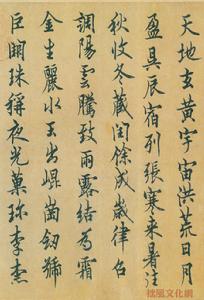 天地玄黄宇宙洪荒日月
盈昃辰宿列張寒来暑往
秋收冬藏閏餘成歲律召
調陽雲騰致雨露結為霜
金生麗水玉出崐崗劒號
巨闕珠稱夜光菓珍李柰